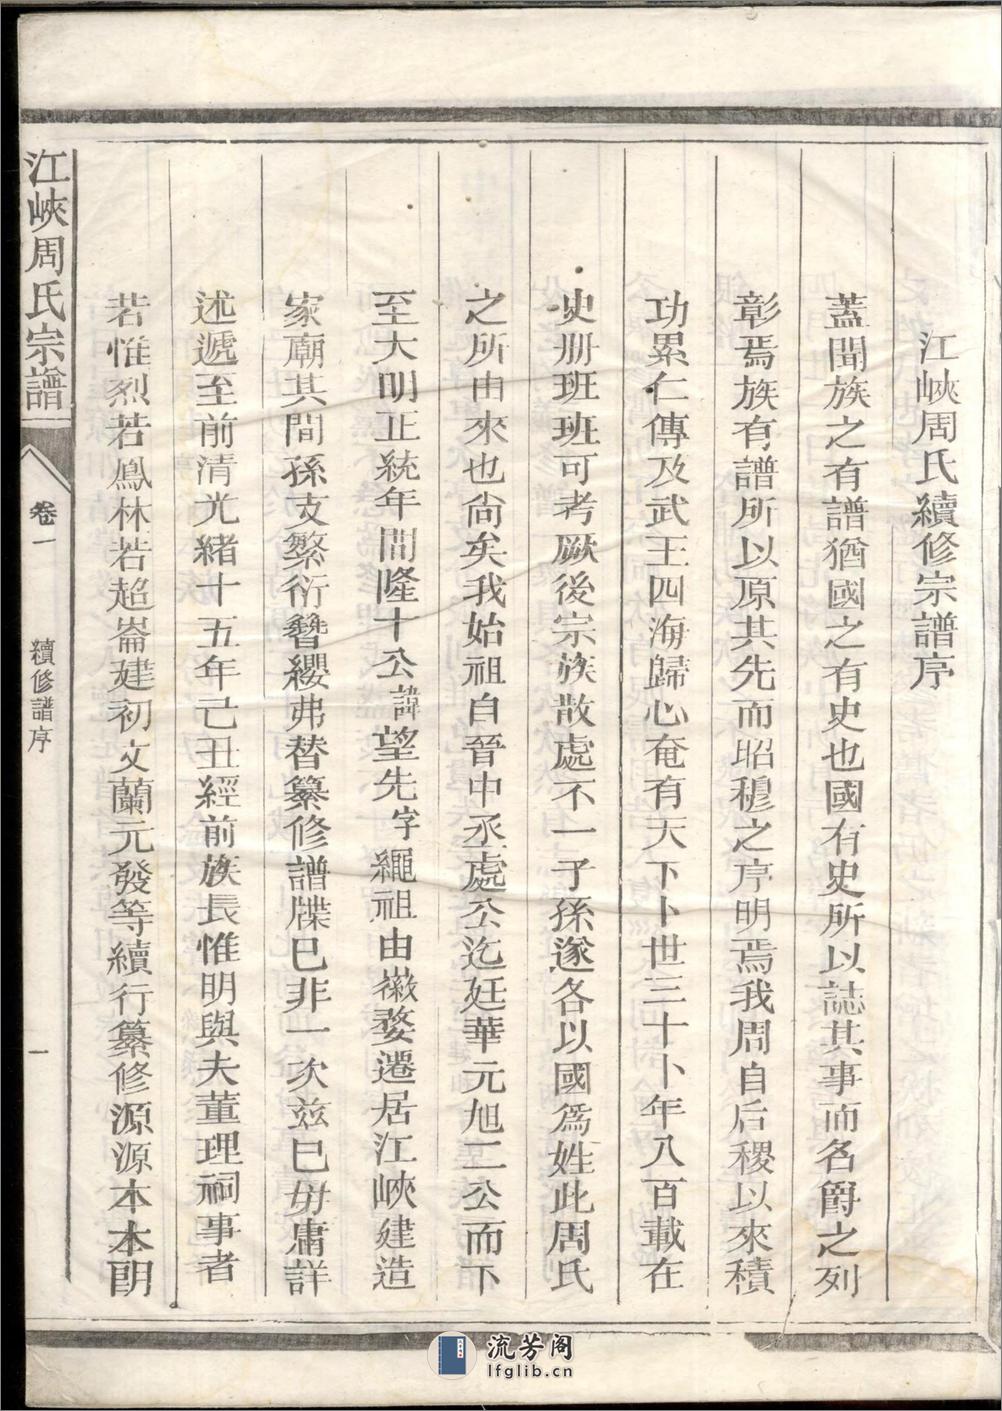 江峽周氏續修宗譜序
蓋聞族之有譜猶國之有史也國有史所以誌其事而名爵之列
彰焉族有譜所以原其先而昭穆之序明焉我周自后稷以來積
功累仁傳及武王四海歸心奄有天下卜世三十卜年八百載在
史册班班可考厥後宗族散處不一子孫遂各以國爲姓此周氏
之所由來也尙矣我始祖自晉中丞處公迄廷華元旭二公而下
至大明正統年間隆十公諱望先字繩祖由徽婺遷居江峽建造
家廟其間孫支繁衍簪纓弗替纂修譜牒已非一次兹已毋庸詳
述遞至前清光緒十五年己丑經前族長惟明與夫董理祠事者
若惟烈若鳳林若超崙建初文蘭元發等續行纂修源源本本朗
江峽周氏宗譜
卷一
續修譜序
一
流芳阁
lfglib.cn